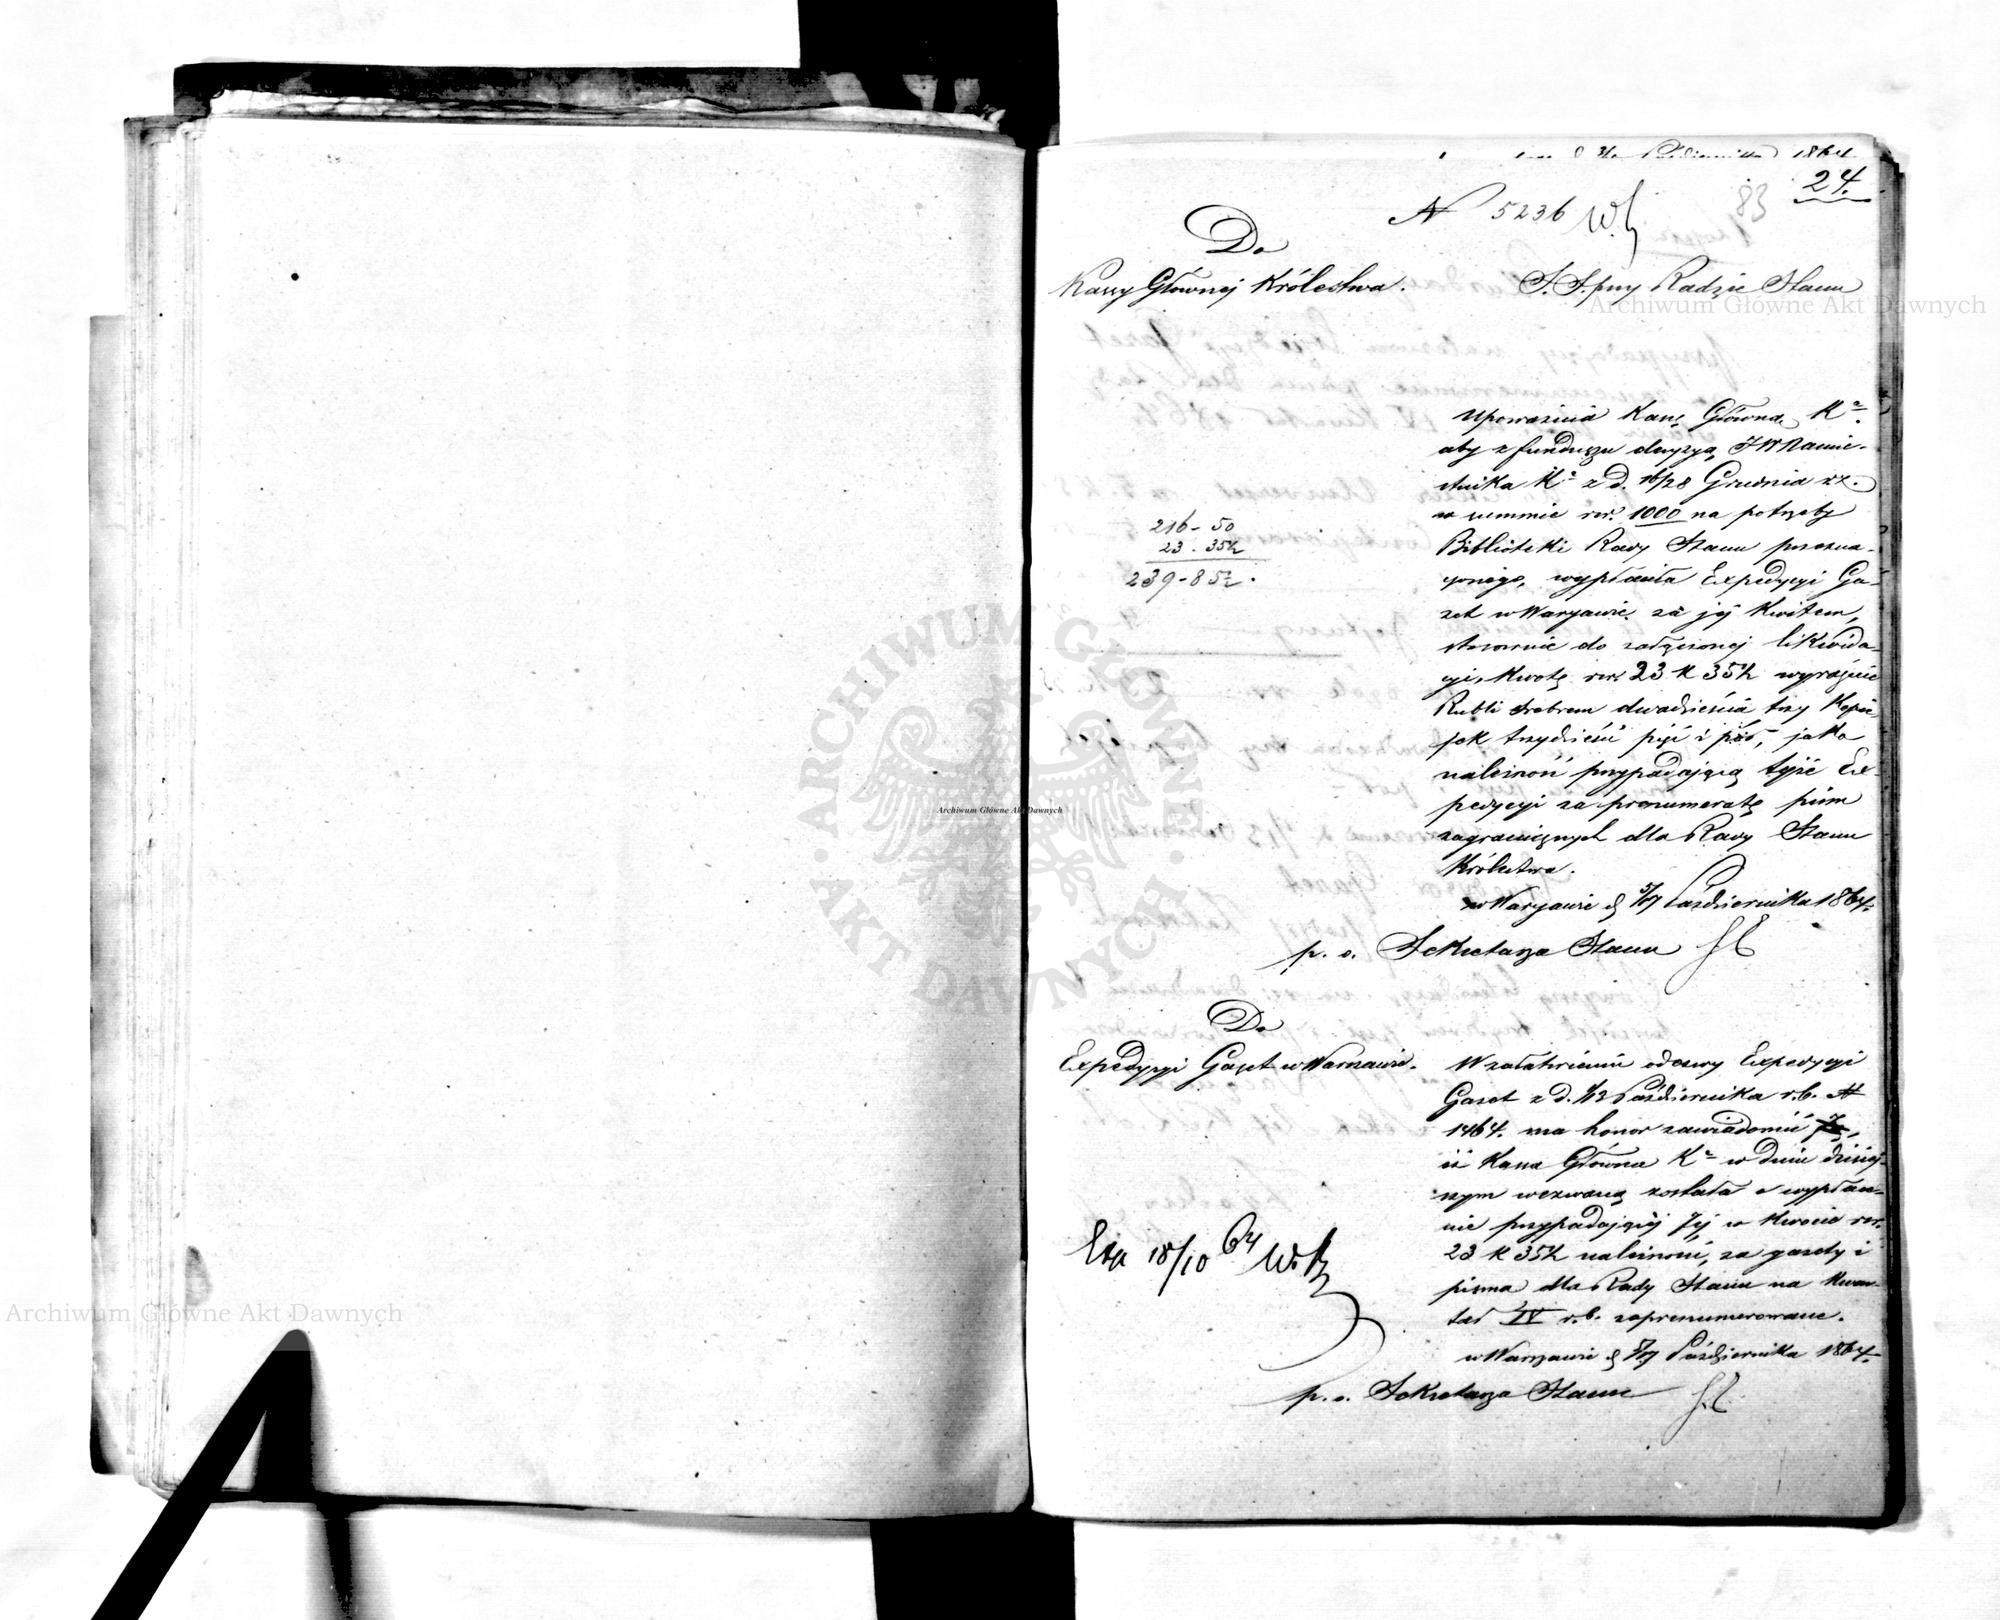 Października 1864
24.
83
N 5236
Do
Kassy Głównej Królestwa.
S. S. przy Radzie Stanu
Upoważnia Kassę Główną Kª.
aby z funduszu decyzyą JW Namie-
stnika Kª z d. 16/28 Grudnia
w summie rsr. 1000 na potrzeby
Biblioteki Rady Stanu przezna-
czonego, wypłaciła Expedycyi Ga-
zet w Warszawie za jej Kwitem,
stosownie do załączonej likwida-
cyi, Kwotę rsr. 23 k 35½ wyraźnie
Rubli srebrem dwadzieścia trzy Kopie-
jek trzydzieści pięć i pół, jako
należność przypadającą tejże Ex-
pedycyi za prenumeratę pism
zagranicznych dla Rady Stanu
Królestwa.
w Warszawie d 5/17 Października 1864.
p. o. Sekretarza Stanu
216 - 50
23 . 35½
239 - 85½.
Do
Expedycyi Gazet w Warszawie.
W załatwieniu odezwy Expedycyi
Gazet z d. 1/13 Października r.b. N
1464. ma honor zawiadomić Ją,
iż Kassa Główna Kª w dniu dzisiej-
szym wezwaną została o wypłace-
nie przypadającej Jej w Kwocie rsr.
23 k 35½ należności, za gazety i
pisma dla Rady Stanu na Kwar-
tał IV r.b. zaprenumerowane.
w Warszawie d 5/17 Października 1864.
p. o. Sekretarza Stanu
18/10 64
Archiwum Główne Akt Dawnych
Archiwum Główne Akt Dawnych
Archiwum Główne Akt Dawnych
ARCHIWUM GŁÓWNE
· AKT DAWNYCH ·